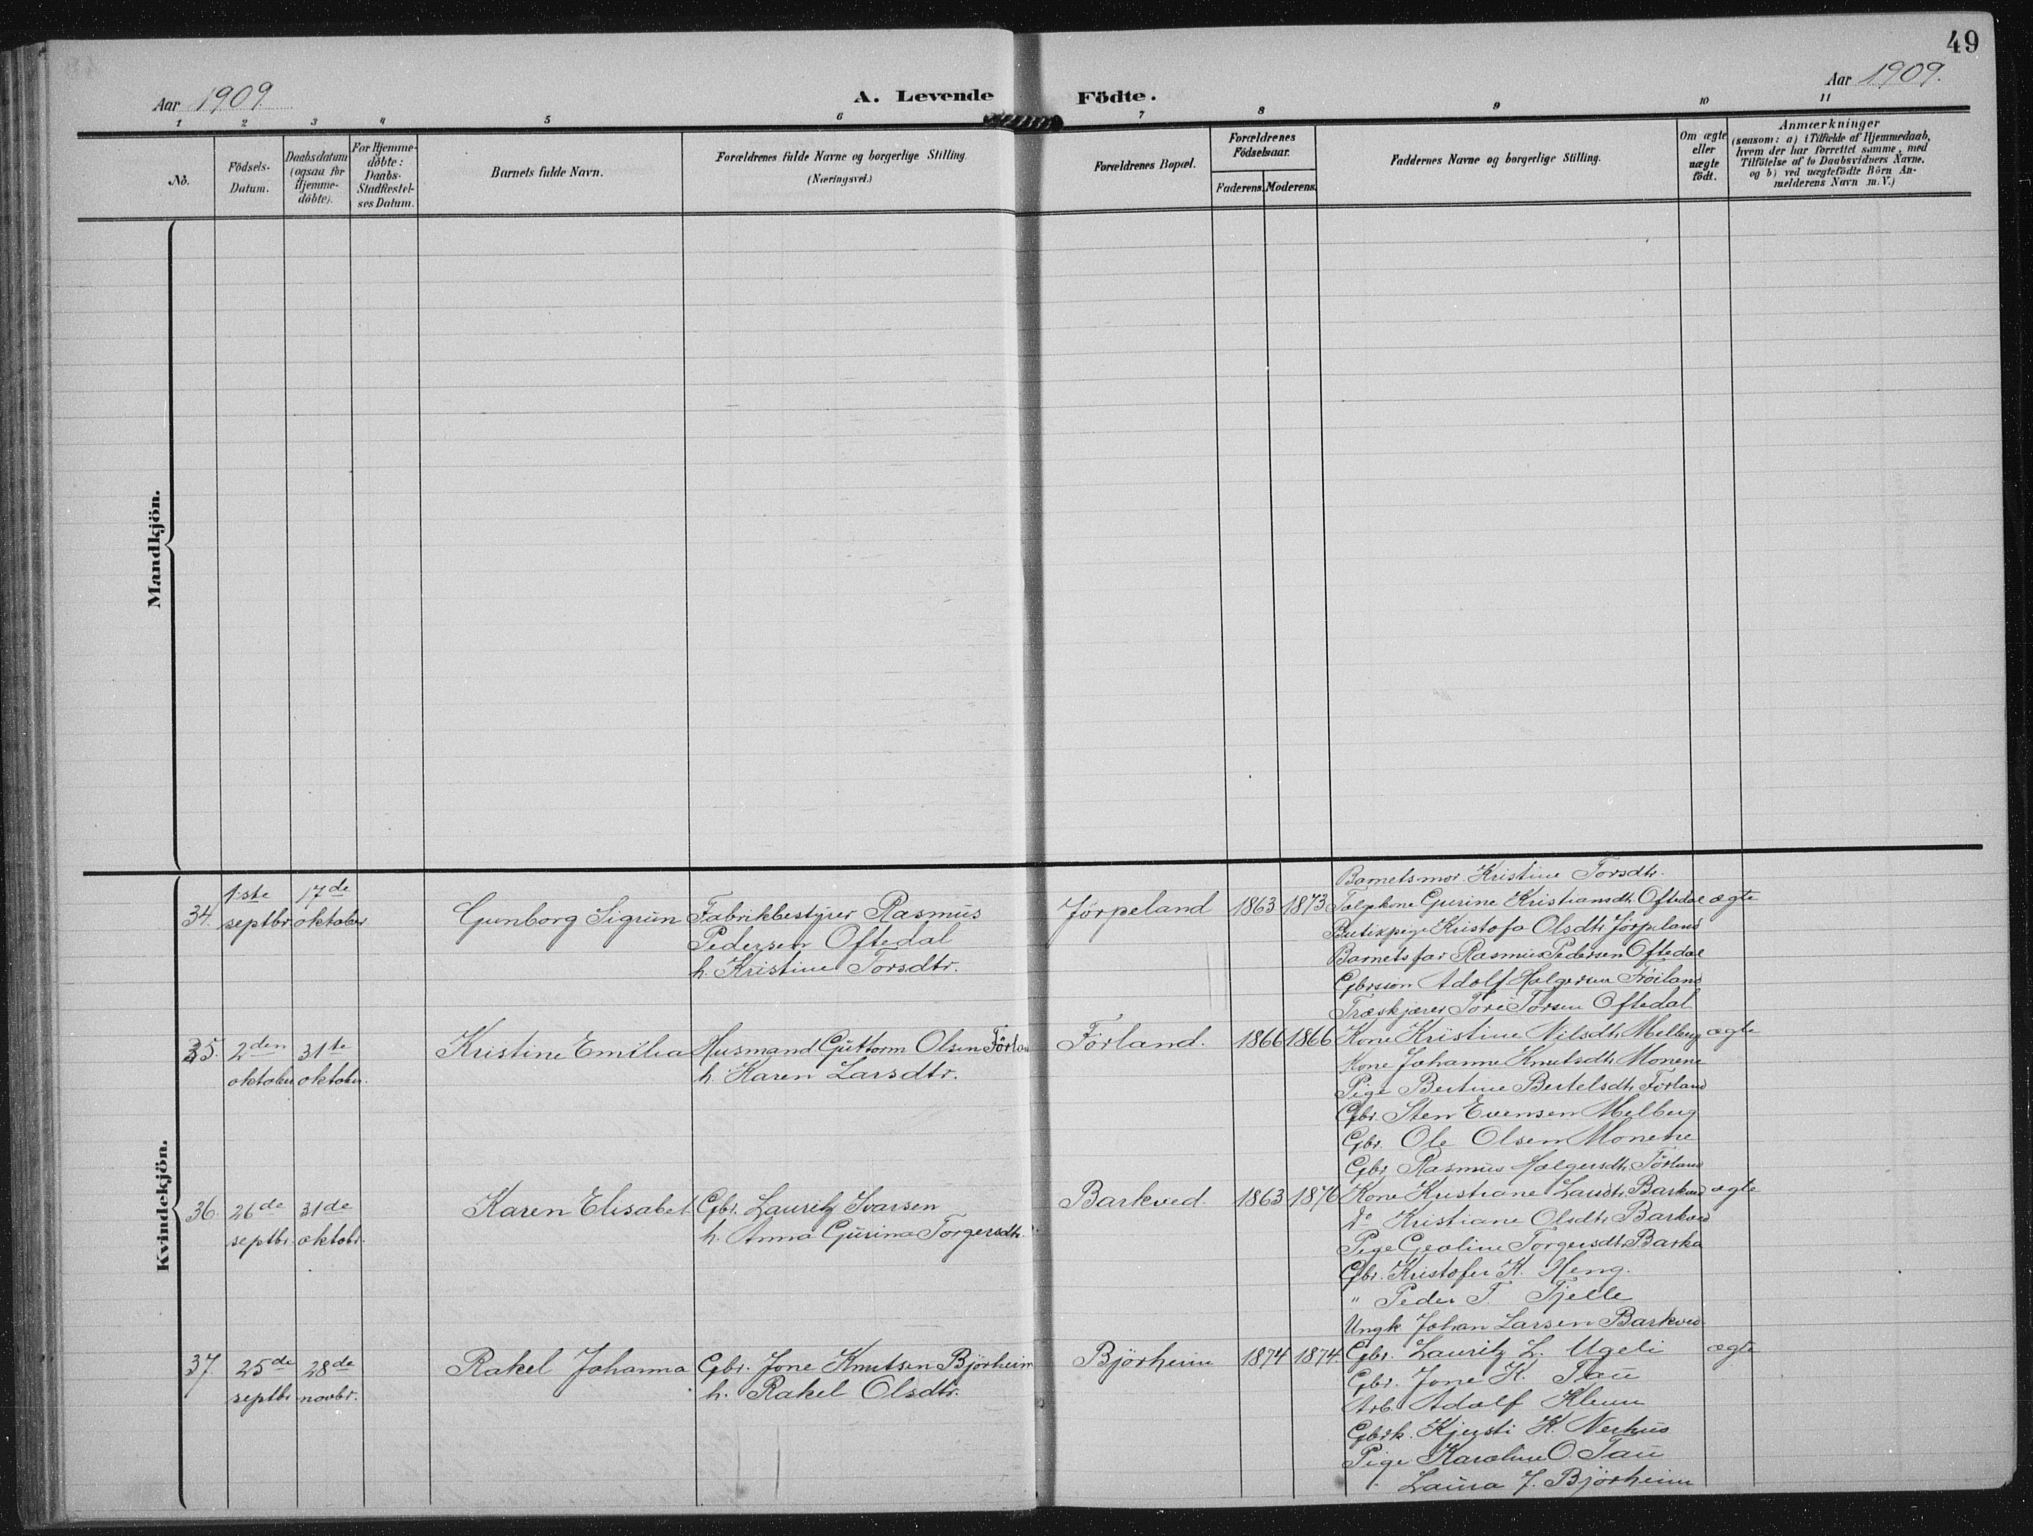 49
Aar 1909
A. Levende Födte.
Aar 1909.
1 2 3 4 5 6 7 8 9 10 11
No.
Födsels-
Datum.
Daabsdatum
(ogsaa for
Hjemme-
döbte).
For Hjemme-
döbte:
Daabs-
Stadfæstel-
ses Datum.
Barnets fulde Navn.
Forældrenes fulde Navne og borgerlige Stilling.
(Næringsvei.)
Forældrenes Bopæl.
Forældrenes
Födselsaar.
Faderens. Moderens.
Faddernes Navne og borgerlige Stilling.
Om ægte
eller
uægte
födt.
Anmærkninger
(saasom: a) i Tilfælde af Hjemmedaab,
hvem der har forrettet samme, med
Tilföielse af to Daabsvidners Navne.
og b) ved uægtefödte Börn An-
melderens Navn m. V.)
Mandkjön.
Kvindekjön.
34.
1ste
septbr.
17de
oktober
Gunborg Sigrun
Fabrikbestyrer Rasmus
Pedersen Oftedal
h. Kristine Torsdtr.
Jörpeland
1863
1873
Barnets mor Kristine Torsdtr.
Gurine Kristiansdtr. Oftedal
Butikpige Kristofa Olsdtr. Jörpeland
Barnets far Rasmus Pedersen Oftedal
Gbrsson Adolf Holgersen Fröiland
Træskjærer Tore Torsen Oftedal
ægte
35.
2den
oktober
31te
oktober.
Kristine Emilia
Husmand Guttorm Olsen Förla
h. Karen Larsdtr.
Förland.
1866
1866
Kone Kristine Nilsdtr. Melberg
Kone Johanne Knutsdtr. Monene
Pige Bertine Bertelsdtr. Förland
Gbr. Sten Evensen Melberg
Gbr. Ole Olsen Monene
Gbr. Rasmus Holgersdtr. Förland
ægte
36.
26de
septbr.
31de
oktobr.
Karen Elisabet
Gbr. Lauritz Ivarsen
h. Anna Gurina Torgersdtr.
Barkved
1863
1876
Kone Kristiane Larsdtr. Barkved
Do Kristiane Olsdtr. Barkved
Pige Gealine Torgersdtr. Barka
Gbr. Kristofer K. Heng.
" Peder T. Tjelle
Ungk. Johan Larsen Barkved
ægte
37.
25de
septbr.
28de
novbr.
Rakel Johanna
Gbr. Jone Knutsen Björheim
h. Rakel Olsdtr.
Björheim
1874
1874.
Gbr. Lauritz L. Ugeli
Gbr. Jone K. Tau
Arb. Adolf Klum
Gbrk. Kjersti K. Nerhus
Pige Karoline O. Tau
" Laura J. Björheim
ægte